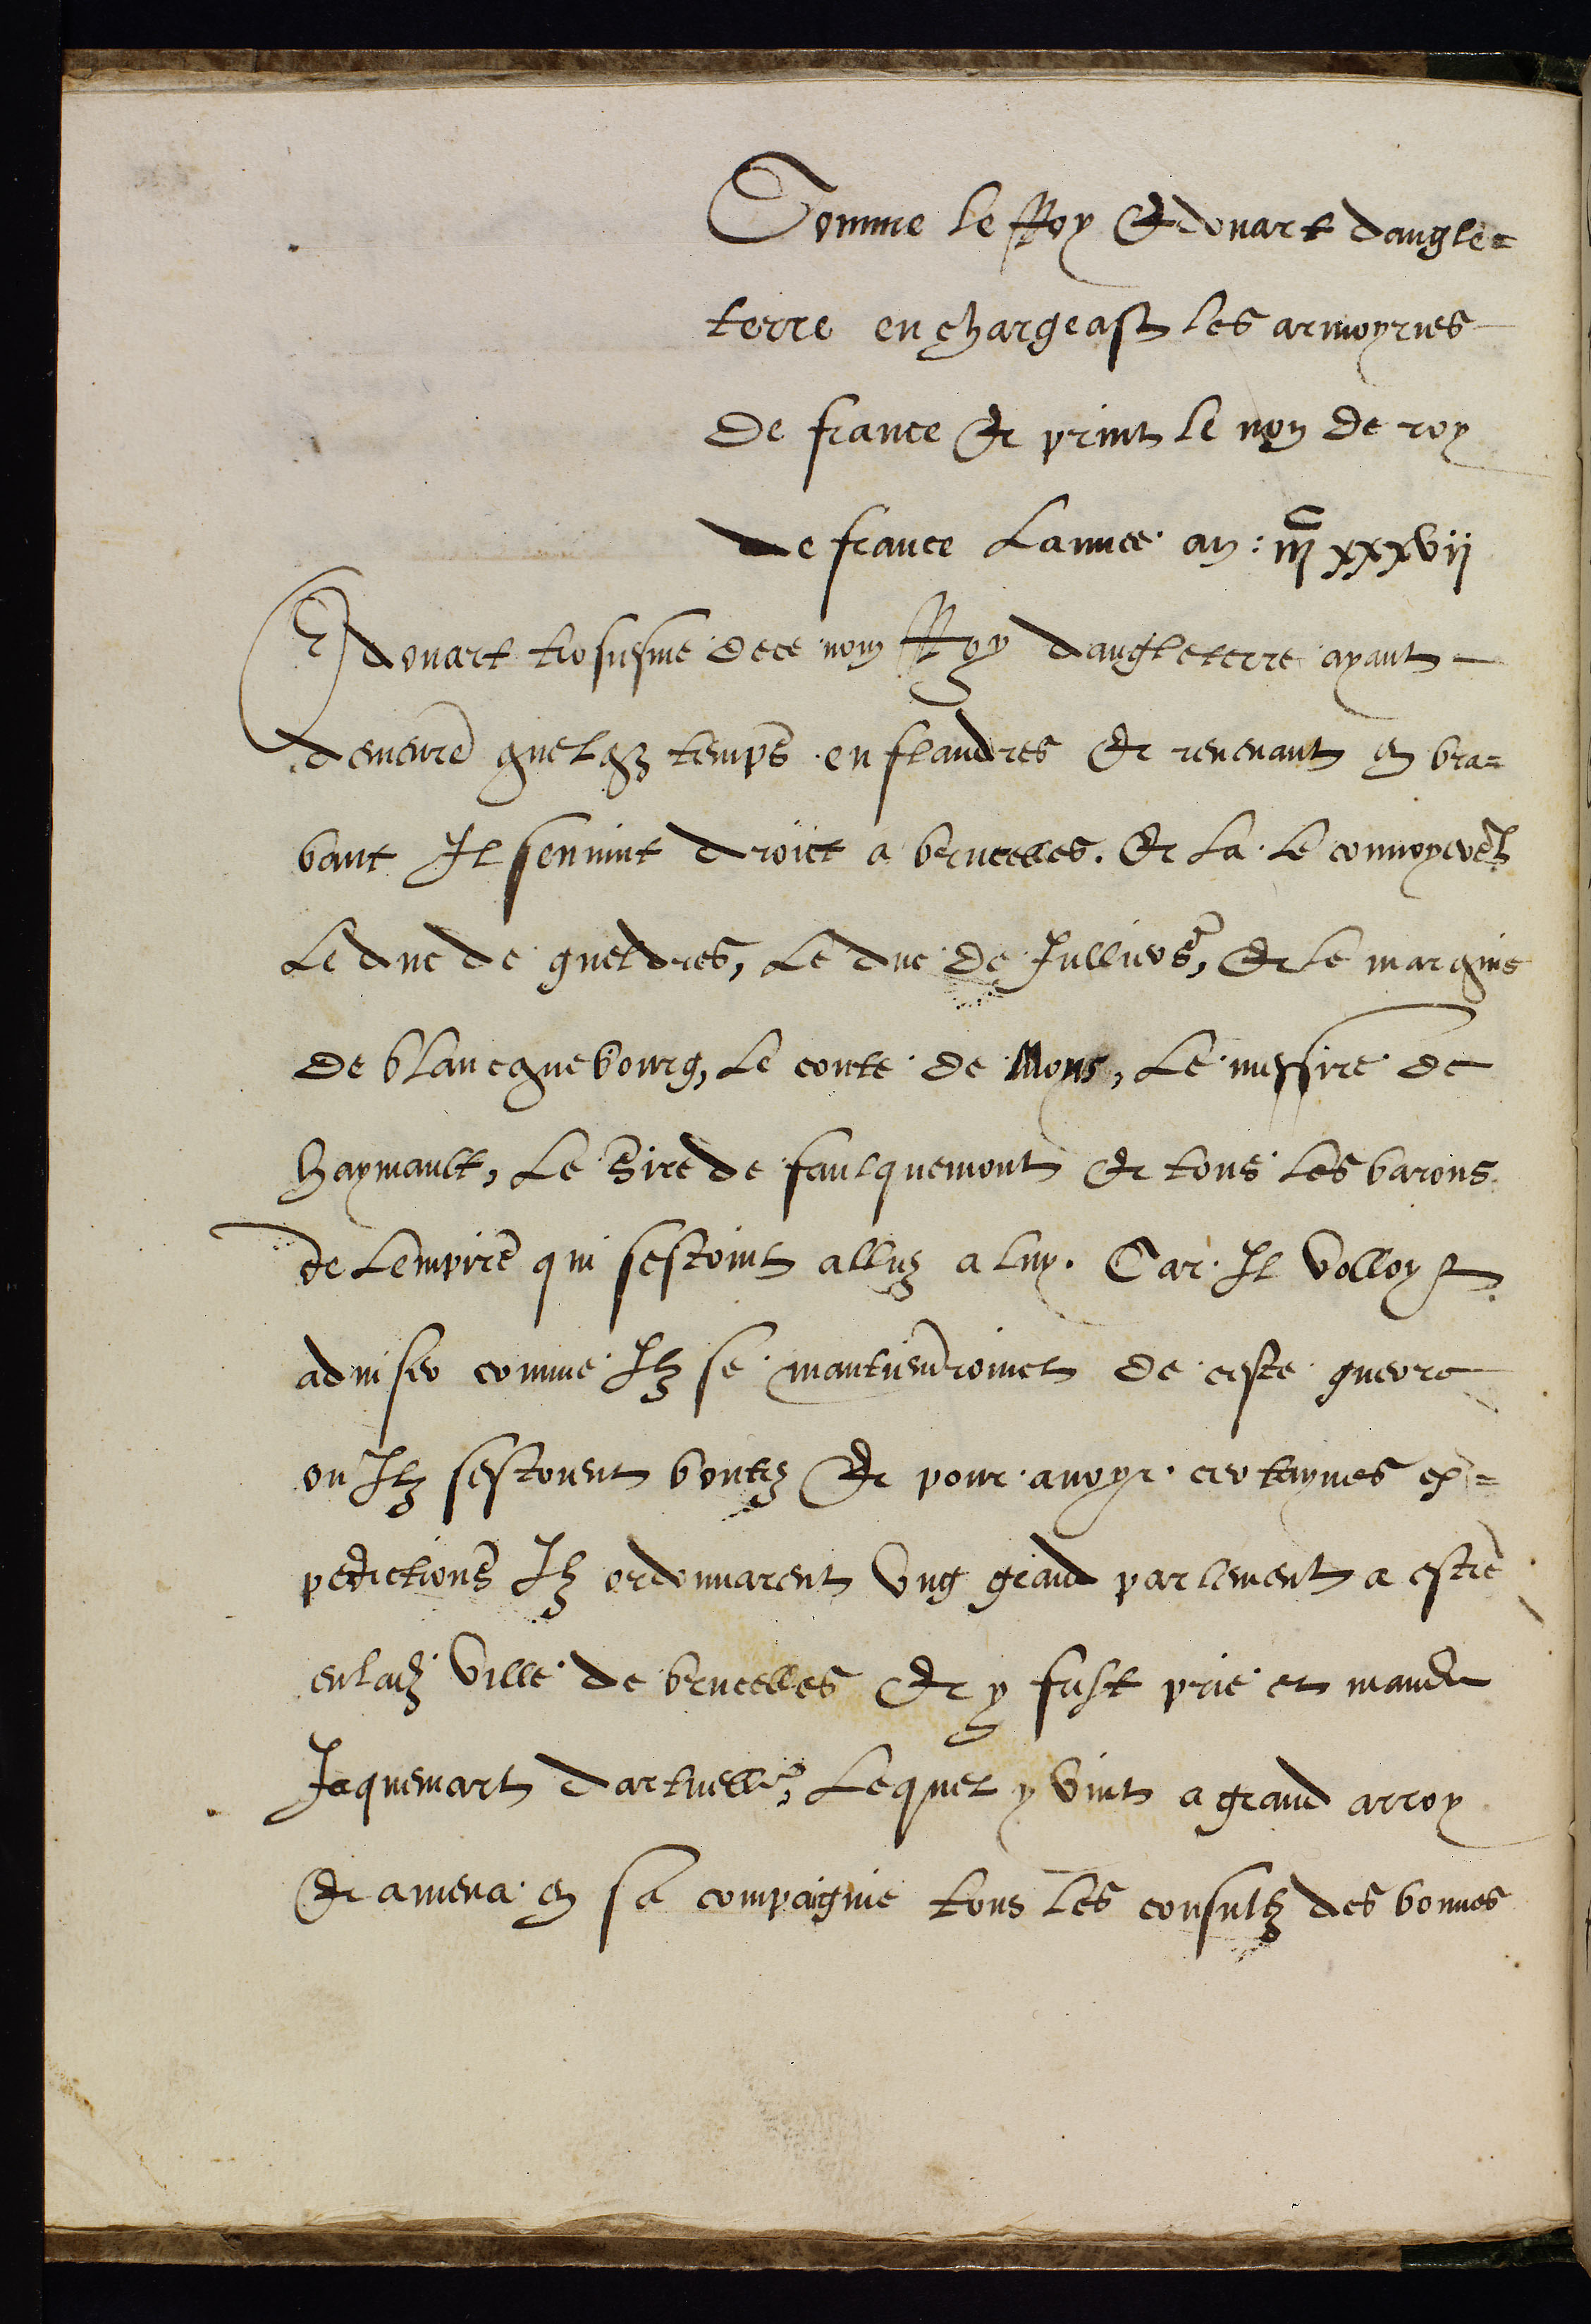 Comme le Roy Edouart dangle=
terre enchargeast les armoyries
de france Et print le nom de roy
de france Lannee an: iiiᶜ xxxvii
Edouart troisiesme de ce nom Roy dangleterre ayant
demeure quelqz temps en flandres Et revenant en bra=
bant Il senvint droict a brucelles. Et la le convoyerẽt
Le duc de gueldres, Le duc de Julliers, Et le marquis
de blancquebourg, Le conte de Mons, Le messire de
haynault, Le Sire de faulquemont Et tous les barons
de Lempire qui sestoint alliez a luy. Car Il volloyt
adviser comme Ilz se mantiendroinct de ceste guerre
ou Ilz sestoient boutez Et pour avoyr certaynes ex=
pedictions Ilz ordonnarent ung grand parlement a estre
en ladz ville de brucelles Et y fust prie et mande
Jaquemart dartuelle, Lequel y vint a grand arroy
Et amena en sa compaignie tous les consulz des bonnes